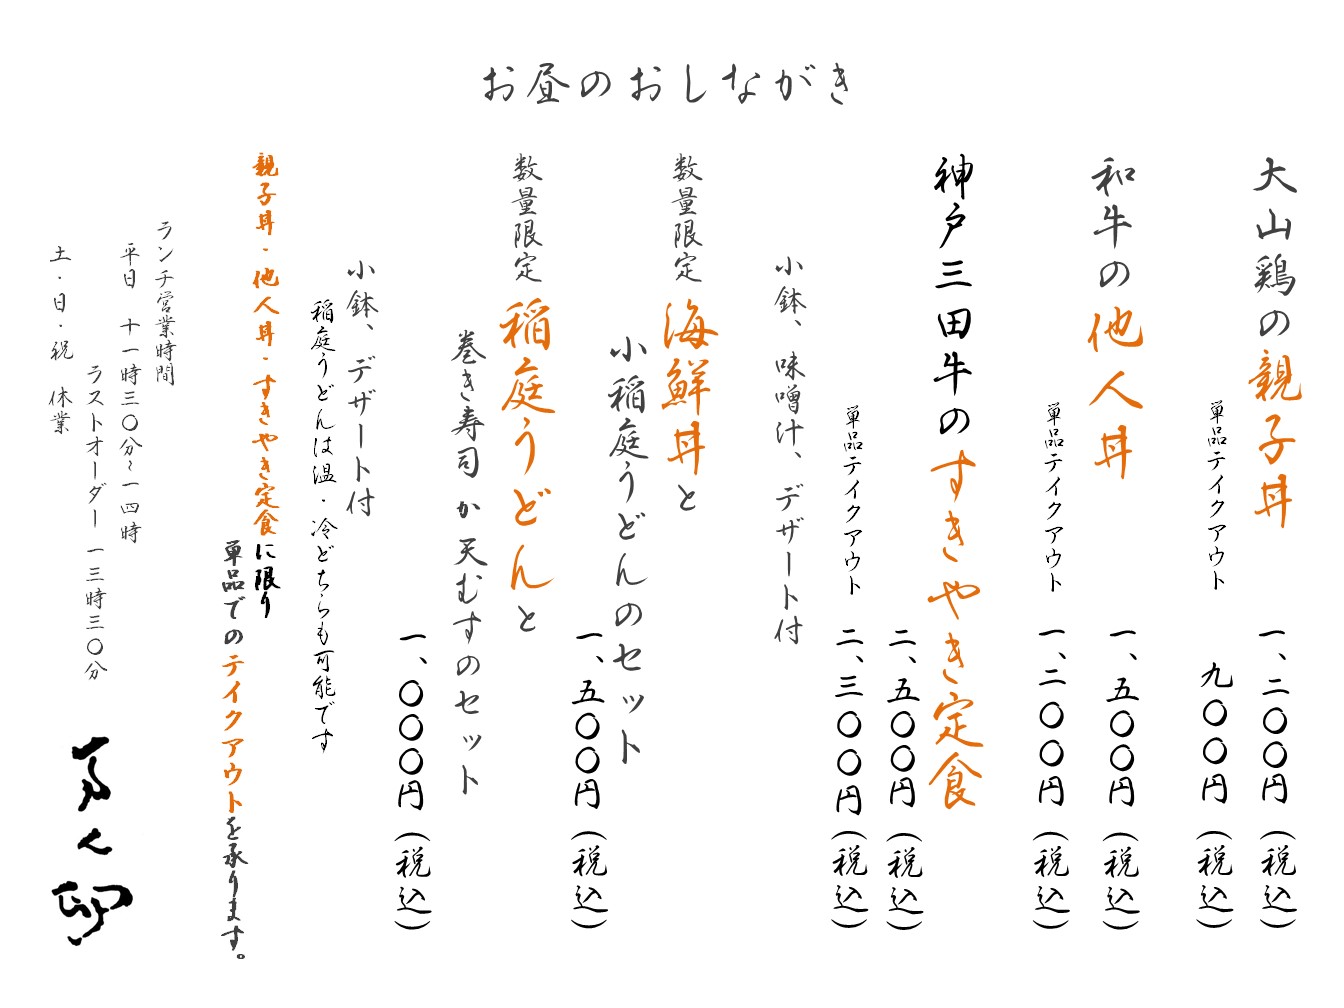 お昼のおしながき
大山鶏の親子丼
一、二〇〇円（税込）
単品テイクアウト
九〇〇円（税込）
和牛の他人丼
一、五〇〇円（税込）
単品テイクアウト
一、二〇〇円（税込）
神戸三田牛のすきやき定食
二、五〇〇円（税込）
単品テイクアウト
二、三〇〇円（税込）
小鉢、味噌汁、デザート付
数量限定 海鮮丼と
小稲庭うどんのセット
一、五〇〇円（税込）
数量限定 稲庭うどんと
巻き寿司 か 天むすのセット
一、〇〇〇円（税込）
小鉢、デザート付
稲庭うどんは温・冷どちらも可能です
親子丼・他人丼・すきやき定食に限り
単品でのテイクアウトを承ります。
ランチ営業時間
平日 十一時三〇分~一四時
ラストオーダー 一三時三〇分
土・日・祝 休業